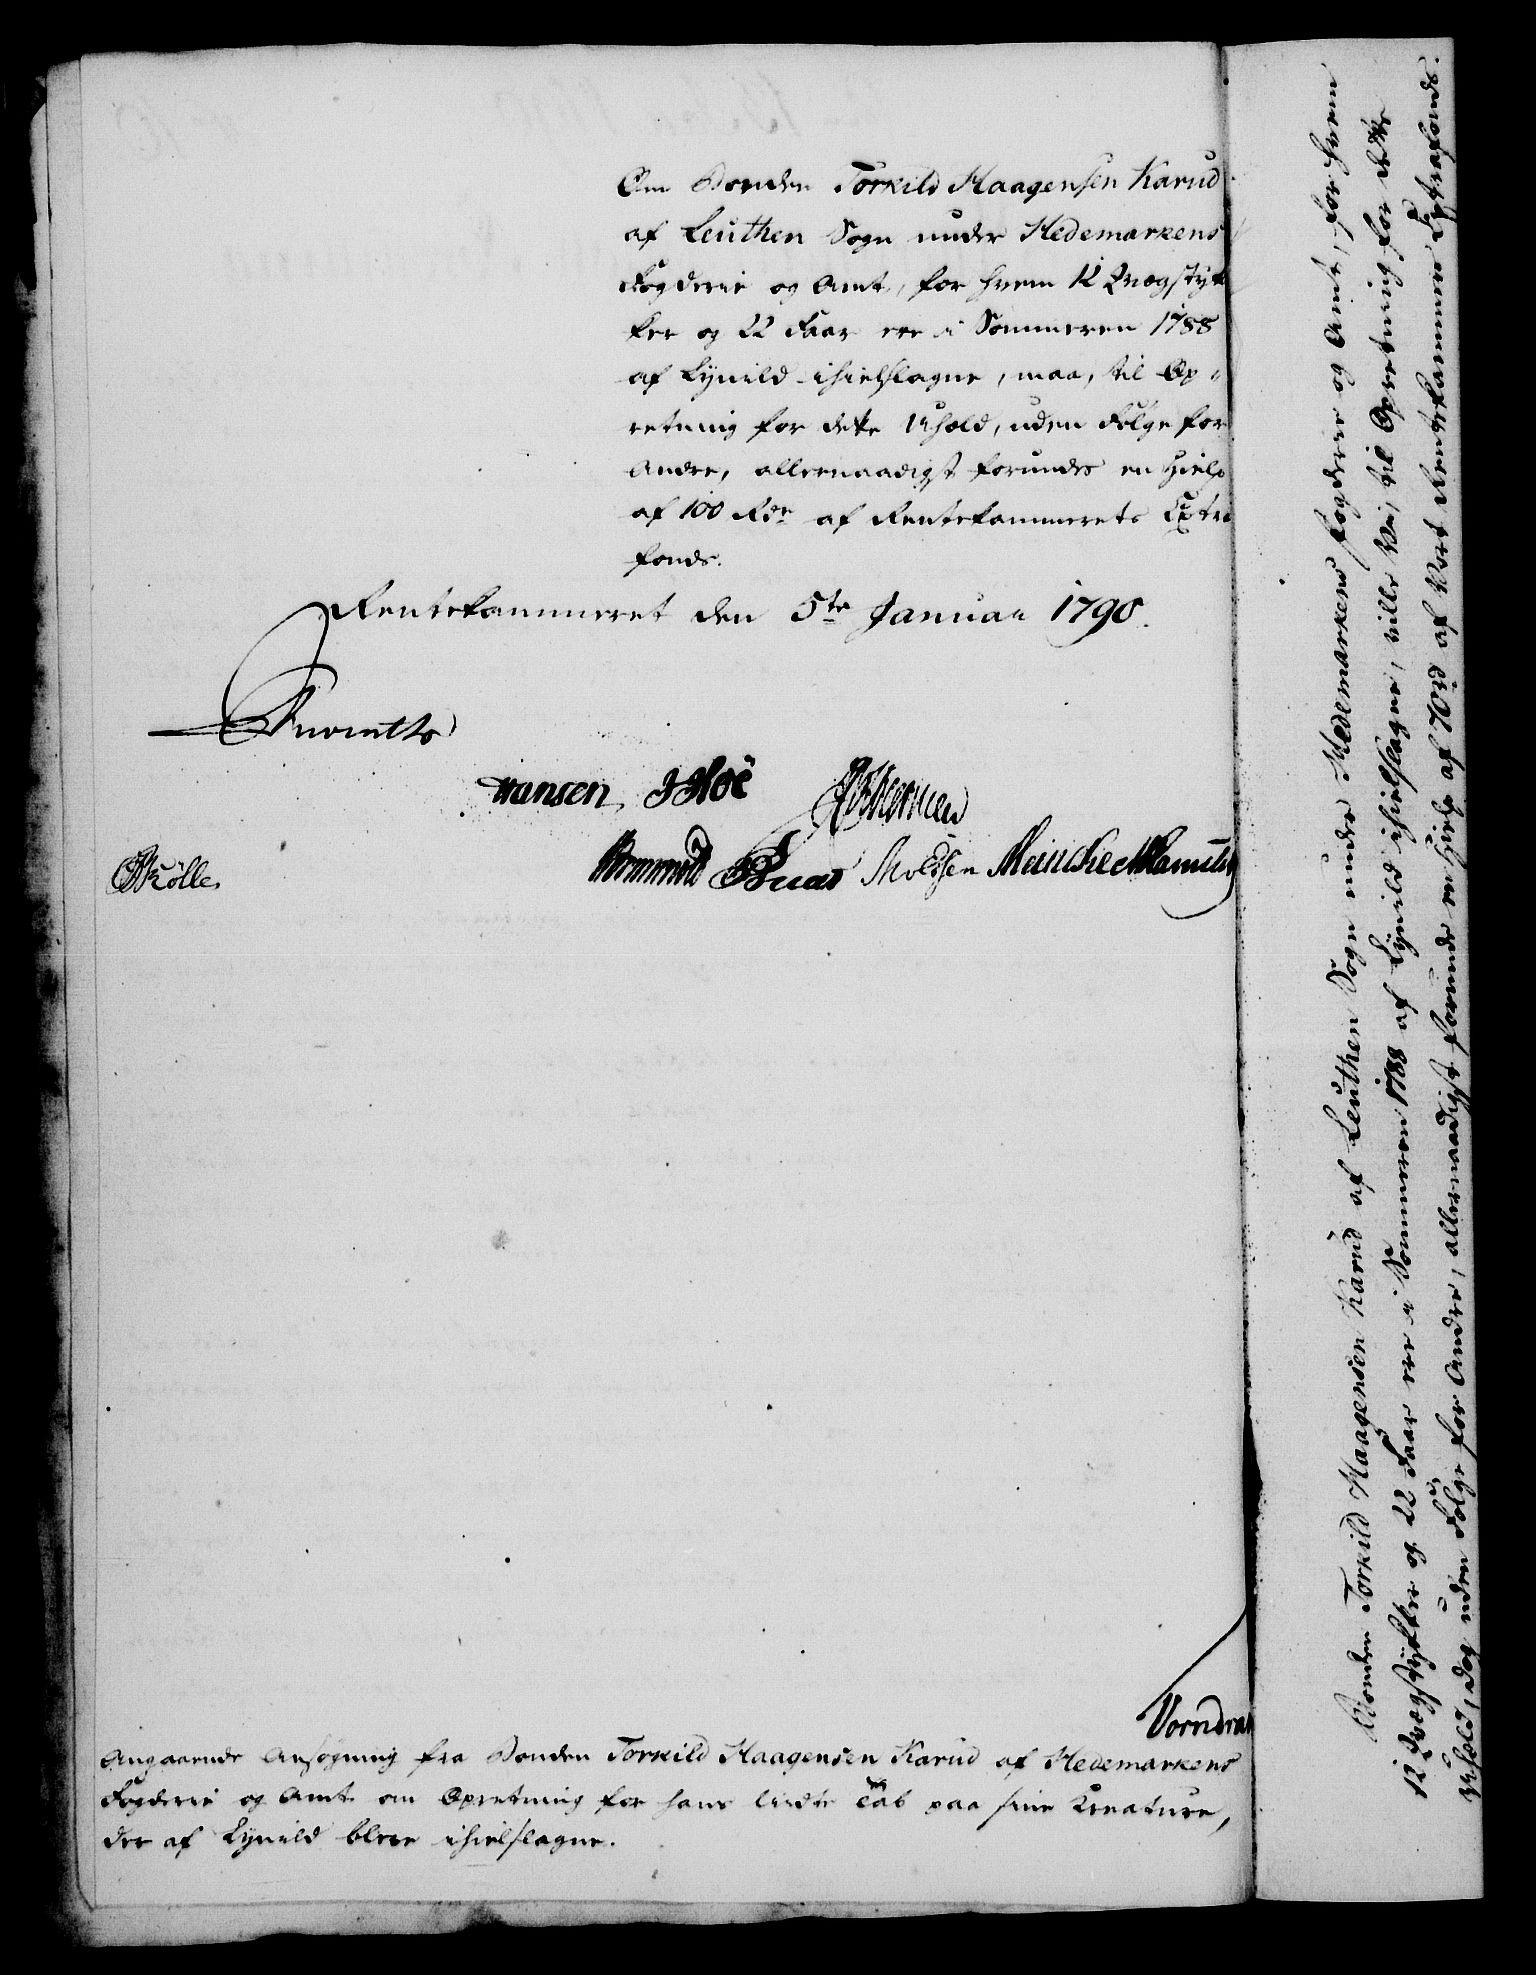 Om Bonden Torkild Haagensen Karud
af Leuthen Sogn under Hedemarkens
Fogderie og Amt, for hvem 12 Qvægstyk
ker og 22 Faar ere i Sommeren 1788
af Lynild ihielslagne, maa, til Op-
retning for dette Uheld, uden Følge for
Andre, allernaadigst forundes en Hielp
af 100 Rdr af Rentekammerets Extra
fonds.
Rentekammeret den 5te Januar 1790.
Hansen
Rølle
Moessen Meincke
Vorndran
Angaaende Ansøgning fra Bonden Torkild Haagensen Karud af Hedemarkens
Fogderie og Amt om Opretning for hans liidte Tab paa sine Creature,
der af Lynild bleve ihielslagne.
Bonden Torkild Haagensen Karud af Leuthen Sogn under Hedemarkens Fogderie og Amt, for hvem
12 Qvægstykker og 22 Faar ere i Sommeren 1788 af Lynild ihielslagne, ville Vi, til Opretning for dette
Uheld, dog uden Følge for Andre, allernaadigst forunde en Hielp af 70 rd af Vort Rentekammers Extrafonds.